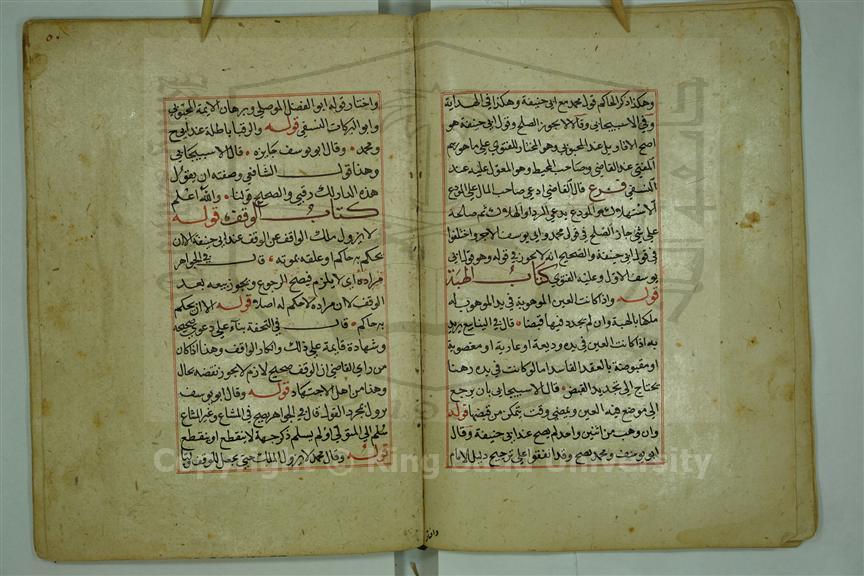 وهكذا ذكر الحاكم قول محمد مع ابي حنيفة وهكذا في الهداية
وفي الاسبيجابي وقالا لا يجوز الصلح وقول ابي حنيفة هو
اصح الاقاويل عند المحبوبي وهو المختار للفتوى على ما هو رسم
المفتي عند القاضي وصاحب المحيط وهو المعول عليه عند
النسفي فرع قال القاضي ادعى صاحب المال على المودع
الاستهلاك والمودع يدعي الرد او الهلاك ثم صالحه
على شي جاز الصلح في قول محمد وابي يوسف الاخر واختلفوا
في قول ابي حنيفة والصحيح انه لا يجوز في قوله وهو قول ابي
يوسف الاول وعليه الفتوى كتاب الهبة
قوله واذا كانت العين الموهوبة في يد الموهوب له
ملكها بالهبة وان لم يجدد فيها قبضا قال في الينابيع يريد
به اذا كانت العين في يده وديعة او عارية او مغصوبة
او مقبوضة بالعقد الفاسد اما لو كانت في يده رهنا
يحتاج الى تجديد القبض قال الاسبيجابي بان يرجع
الى موضع فيه العين ويمضي وقت يتمكن من قبضها قوله
وان وهب من اثنين واحد لم يصح عند ابي حنيفة وقال
ابو يوسف ومحمد يصح وقد اتفقوا على ترجيح دليل الامام
واختار
٥٠
واختار قوله ابو الفضل الموصلي وبرهان الايمة المحبوبي
وابو البركات النسفي قوله والرقبا باطلة عند ابي ح
ومحمد وقال ابو يوسف جايزة قال الاسبيجابي
وهذا قول الشافعي وصفته ان يقول
هذه الدار لك رقبى والصحيح قولنا والله اعلم
كتاب الوقف قوله
لا يزول ملك الواقف عن الوقف عند ابي حنيفة الا ان
يحكم به حاكم او علقه بموته قال في الجواهر
مراده اي لا يلزم فيصح الرجوع ويجوز بيعه بعد
الوقف لا ان مراده لا حكم له اصلا قوله الا ان يحكم
به حاكم قال في التحفة بناء على دعوى صحيحة
وشهادة قايمة على ذلك وانكار الواقف وهذا اذا كان
من راي القاضي ان الوقف صحيح لازم لا يجوز نقضه بحال
وهذا من اهل الاجتهاد قوله وقال ابو يوسف
يزول بمجرد القول قال في الجواهر يصح في المشاع وغير المشاع
سلم الى المتولي او لم يسلم ذكر جهة لا ينقطع او ينقطع
قوله وقال محمد لا يزول الملك حتى يجعل للوقف وليا
Copyright © King Saud University